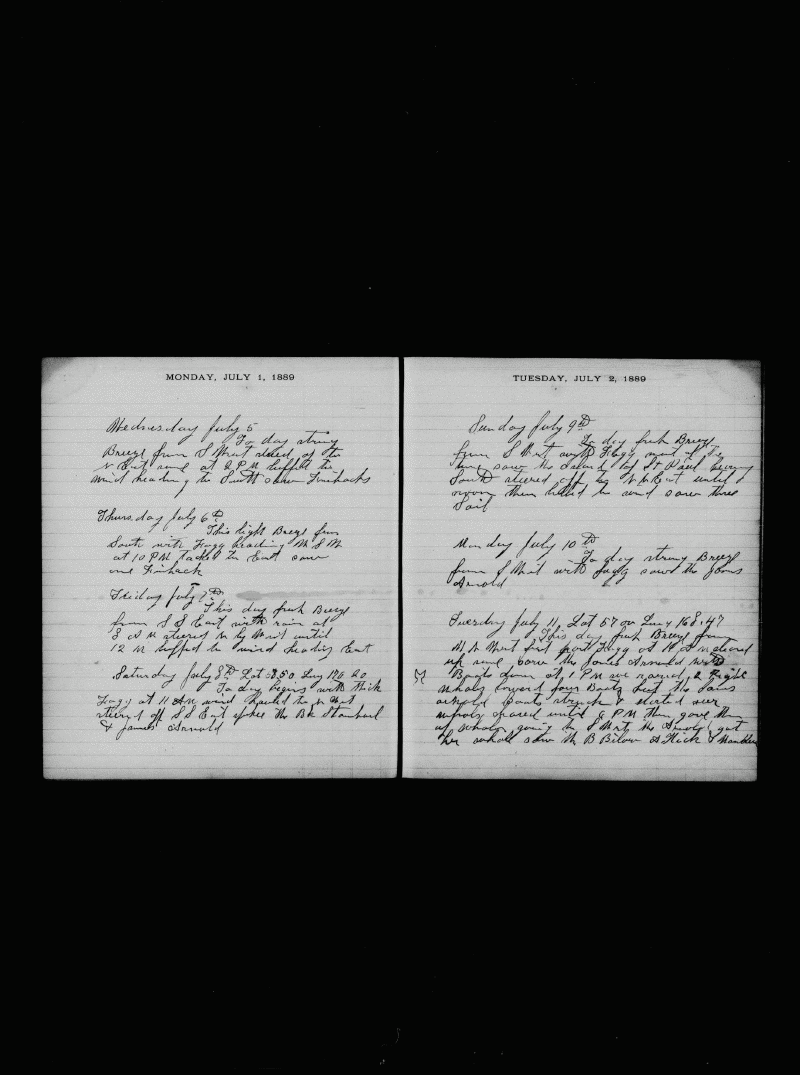 MONDAY, JULY 1, 1889
Wednesday July 5
To day strong
Breeze from S West steered of to
N East until at 8 PM luffed to
wind heading to South saw Finbacks
Thursday July 6th
This light Breeze from
South with Fogg heading W S W
at 10 PM tacked to East saw
one Finback
Friday July 7th
This day fresh Breeze
from S S East with rain at
8 A M steered N by West until
12 M luffed to wind heading East
Saturday July 8th Lat 58.50 Long 176 20
To day begins with thick
Fogg at 11 AM wind hauled to N West
steered off S S East spoke the Bk Stamboul
& James Arnold
TUESDAY, JULY 2, 1889
Sunday July 9th
To day fresh Breeze
from S West with Fogg
time saw the Island of St Paul bering
South steered off by N East until
noon then hauled to wind saw three
Sail
Monday July 10th
To day strong Breeze
from S West with fogg saw the James
Arnold
Tuesday July 11, Lat 57 00 Long 168.47
This day fresh Breeze from
W N West first part Fogg at 11 A M cleared
up some saw the James Arnold with
Boats down at 1 PM we raised 2 Right
whales lowered four Boats but the James
Arnold boats struck & we
chased until 8 PM then gave them
up whales going to S West the Arnold got
her whale saw the B A Hick &